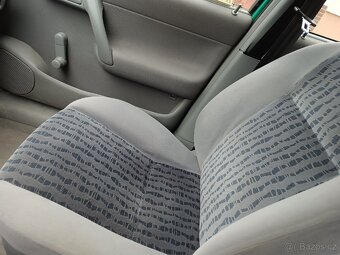 Bazoš.cz